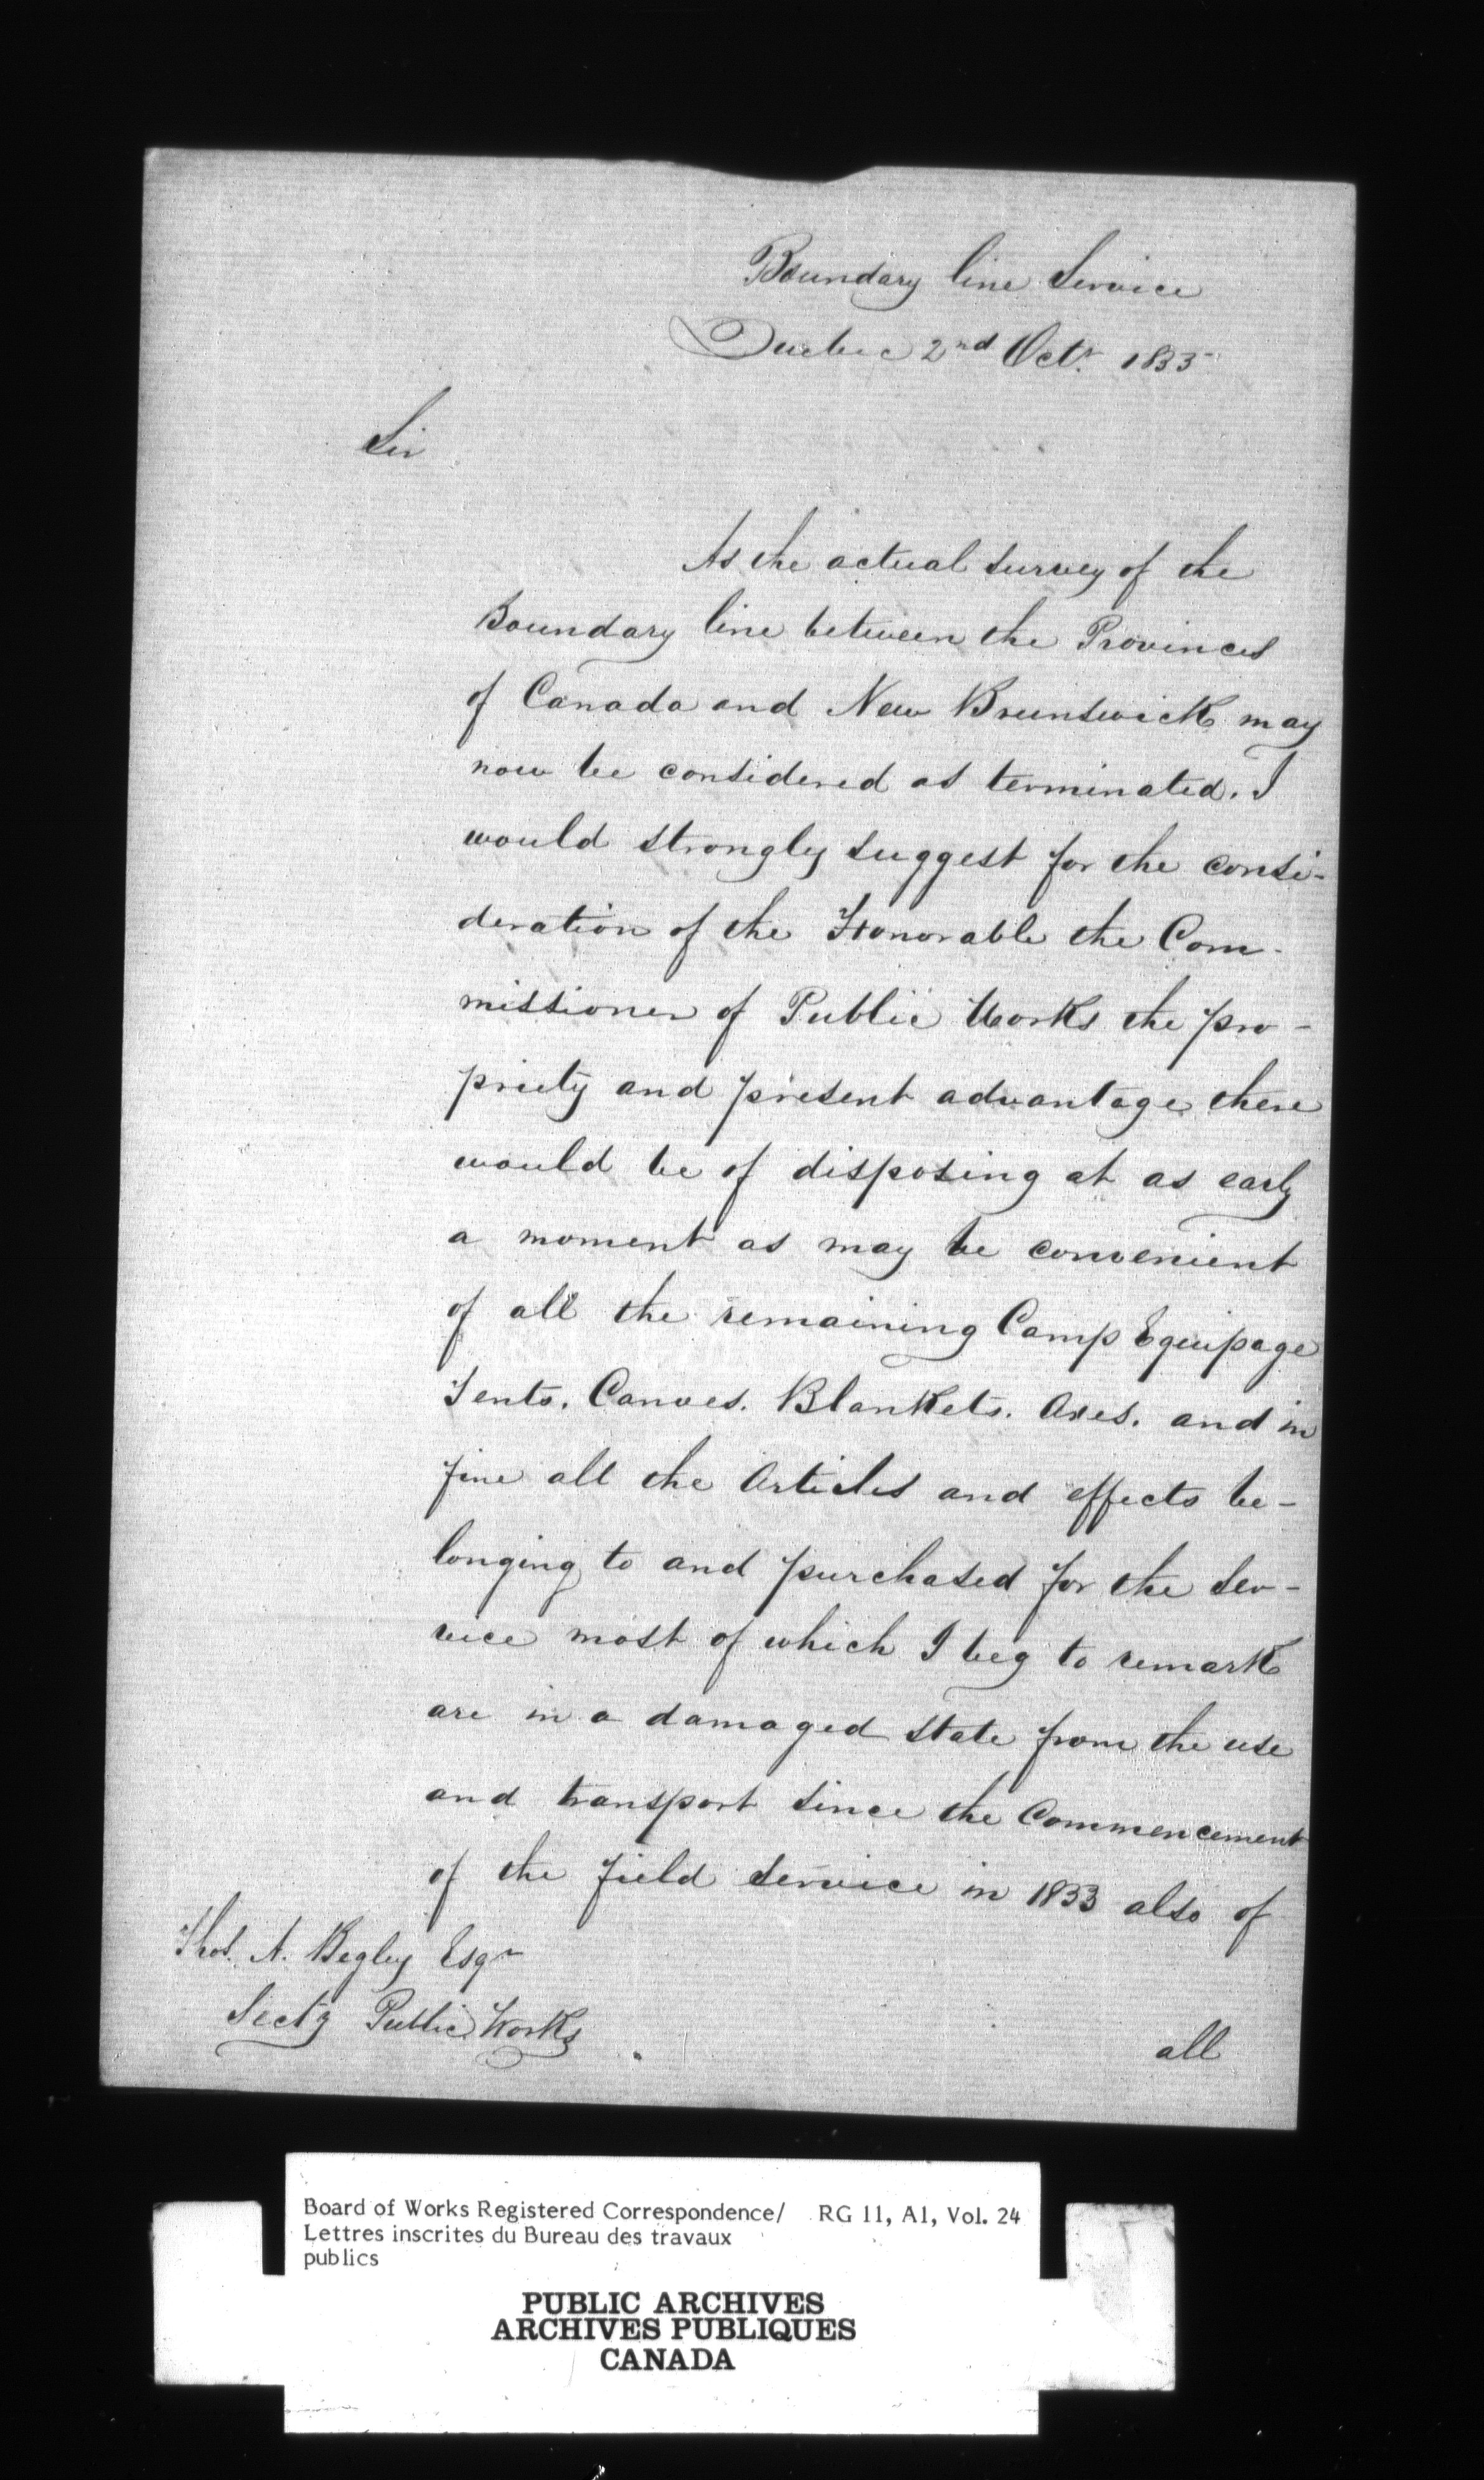 Boundary line Service
Quebec 2nd Octr. 1855
Sir
As the actual survey of the
Boundary line between the Provinces
of Canada and New Brunswick may
now be considered as terminated. I
would strongly suggest for the consi-
deration of the Honorable the Com-
missioner of Public Works the pro-
priety and present advantage there
would be of disposing at as early
a moment as may be convenient
of all the remaining Camp Equipage
Tents. Canoes. Blankets. Axes. and in
fine all the Articles and effects be-
longing to and purchased for the Ser-
vice most of which I beg to remark
are in a damaged state from the use
and transport since the Commencement
of the field service in 1853 also of
Thos. A. Begley Esqr
Secty Public Works
all
Board of Works Registered Correspondence/ RG 11, A1, Vol. 24
Lettres inscrites du Bureau des travaux
publics
PUBLIC ARCHIVES
ARCHIVES PUBLIQUES
CANADA